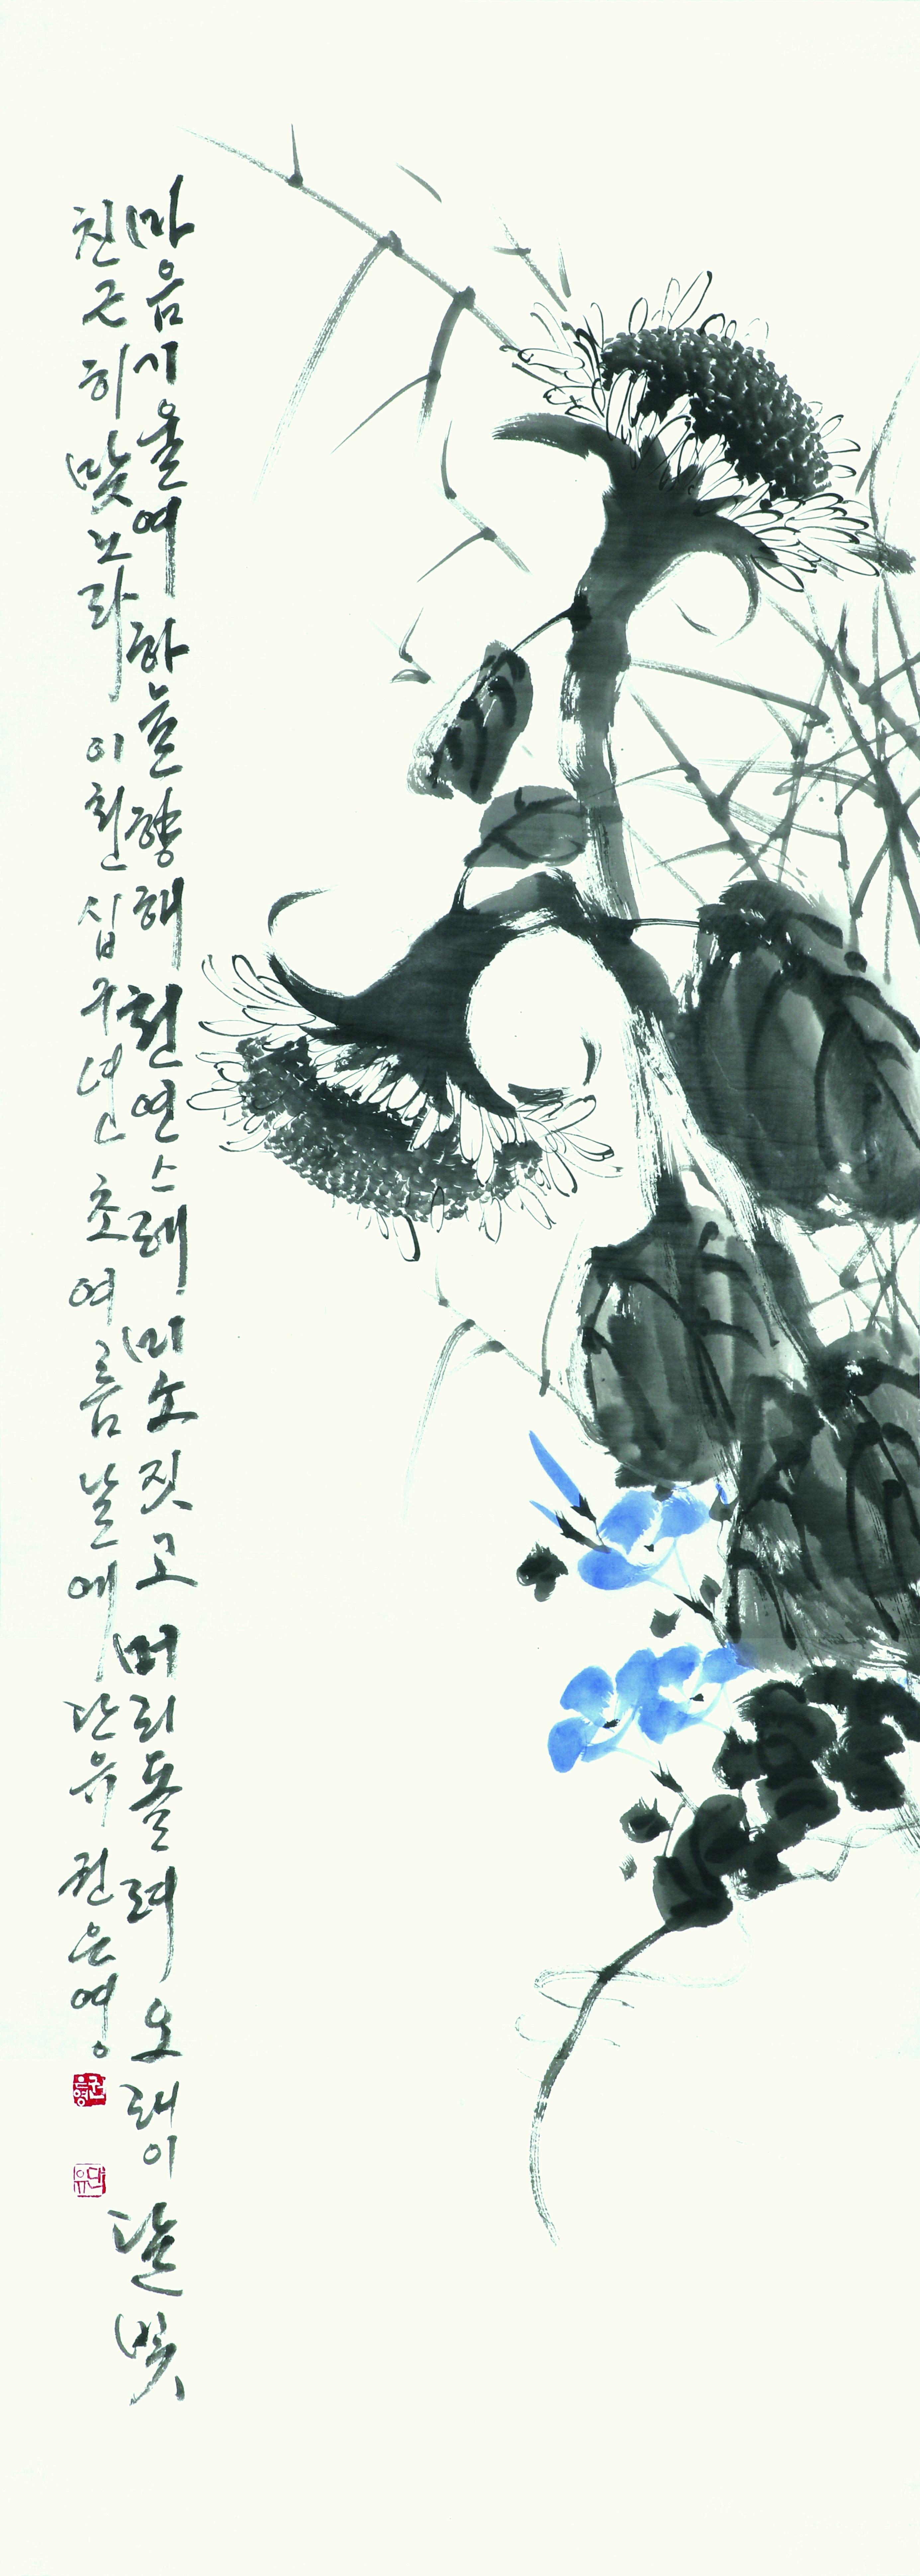 마음 기울여 하늘 향해 천연스레 미소 짓고 머리 돌려 오래이 달빛
친근히 맞노라 이천십구년 초여름날에 단유 권은영
권은영
단유